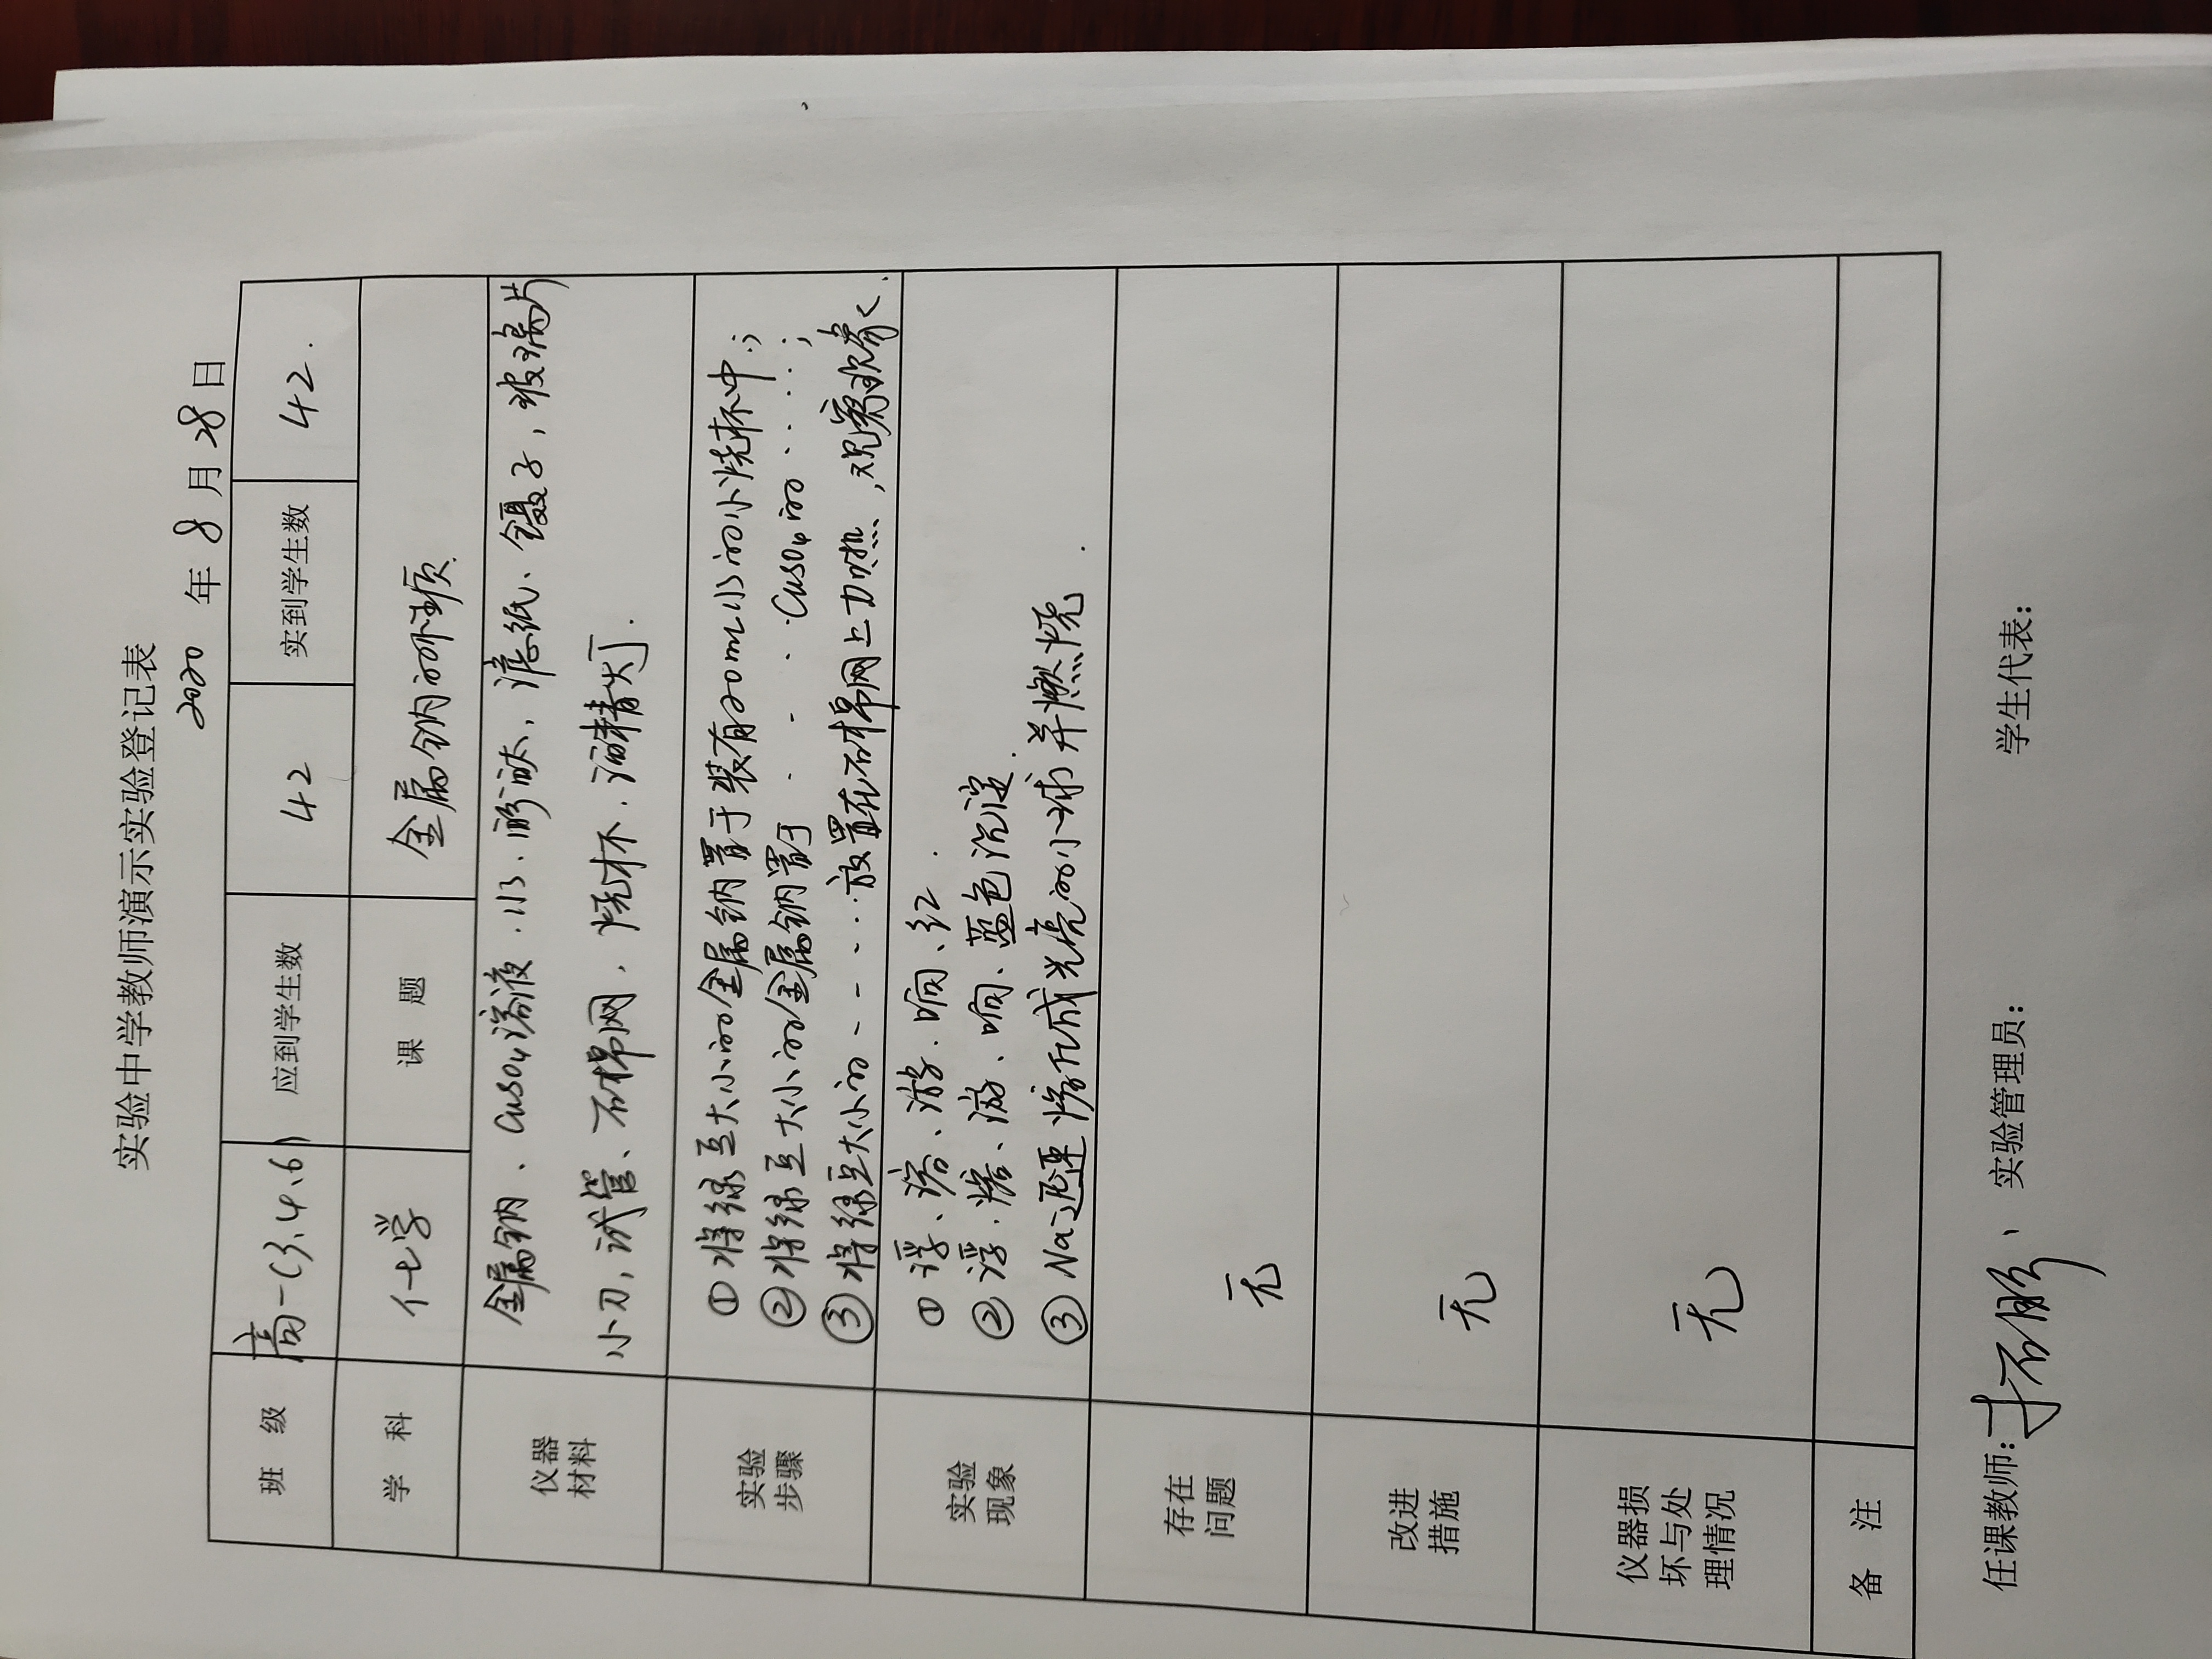 实验中学教师演示实验登记表
2020 年 8 月 28 日
班 级 高一(3.4.6) 应到学生数 42 实到学生数 42.
学 科 化学 课 题 金属钠的性质.
仪器
材料
金属钠、CuSO4溶液.水.酚酞、滤纸、镊子,玻璃片
小刀,试管、石棉网.烧杯.酒精灯.
实验
步骤
①将绿豆大小的金属钠置于装有20mL水的小烧杯中;
②将绿豆大小的金属钠置于 - - · · CuSO4的 · · · · ·;
③将绿豆大小的 - - - - · · 放置在石棉网上加热,观察现象.
实验
现象
①浮、熔、游.响、红.
②浮.熔、游、响、蓝色沉淀.
③Na迅速熔化成光亮的小球并燃烧.
存在
问题
无
改进
措施
无
仪器损
坏与处
理情况
无
备 注
任课教师: 、 实验管理员: 学生代表: